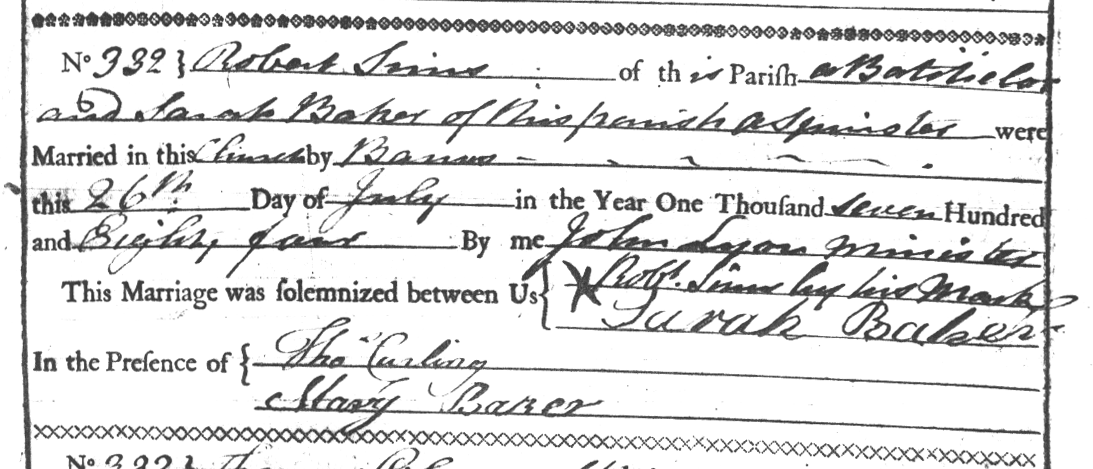 Nº 332 } Robert Sims of this Pariſh a Batchelor
and Sarah Baker of this parish a Spinster were
Married in this Church by Banns
this 26th Day of July in the Year One Thouſand seven Hundred
and Eighty four By me John Lyon Minister
This Marriage was ſolemnized between Us { X Robt. Sims by his Mark
Sarah Baker
In the Preſence of { Tho Curling
Mary Baker
Nº 333 }